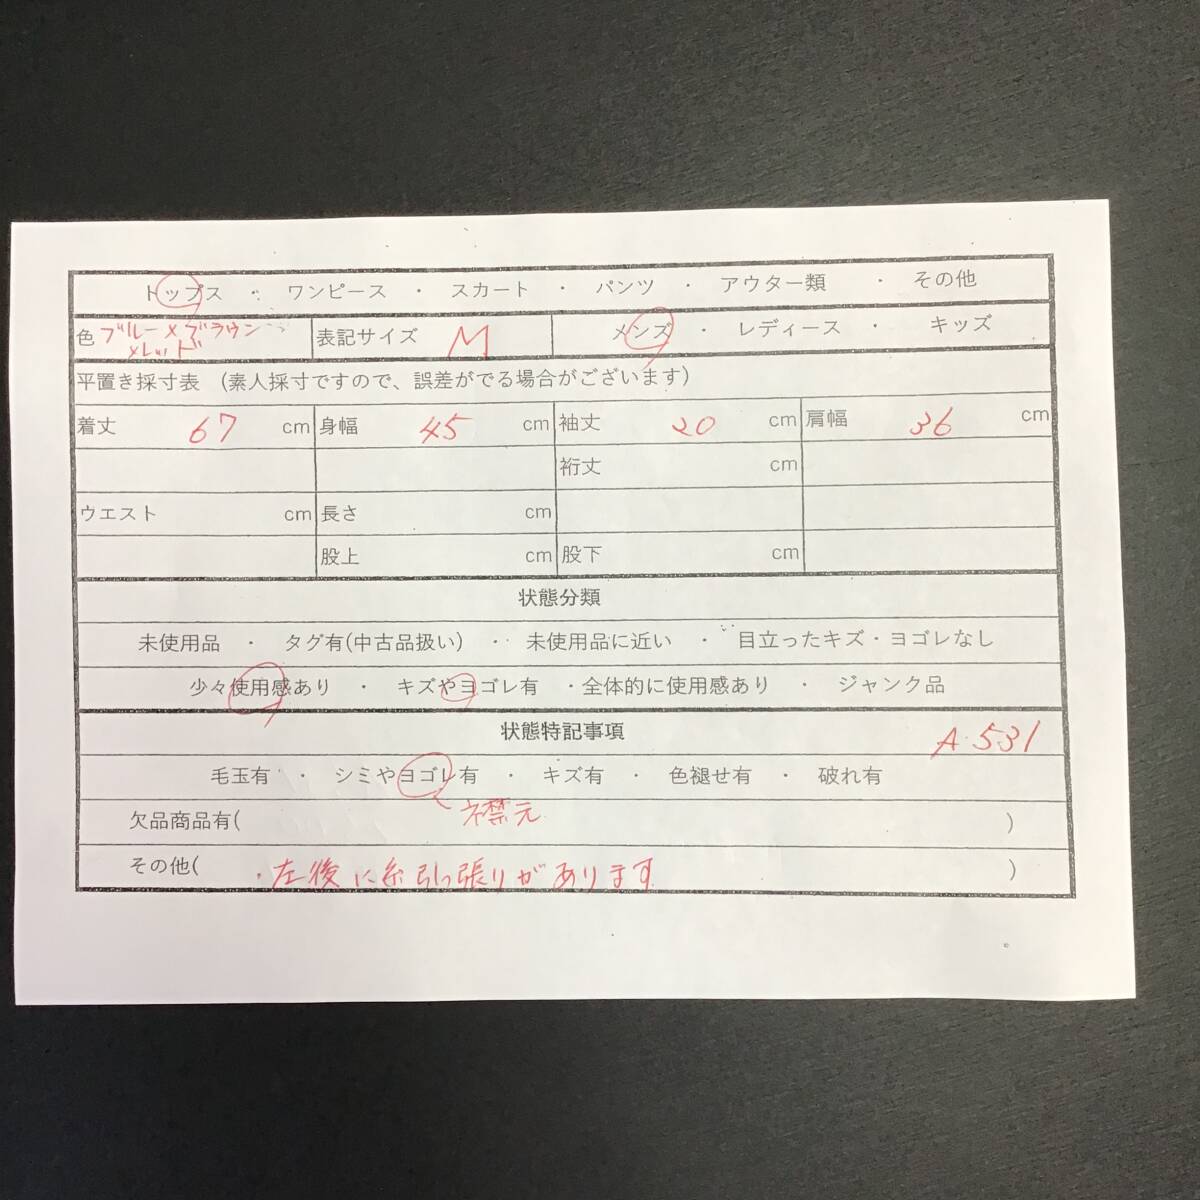 トップス ・ ワンピース ・ スカート ・ パンツ ・ アウター類 ・ その他
色 ブルー×ブラウン ×レッド 表記サイズ M メンズ ・ レディース ・ キッズ
平置き採寸表 (素人採寸ですので、誤差がでる場合がございます)
着丈 67 cm 身幅 45 cm 袖丈 20 cm 肩幅 36 cm
裄丈 cm
ウエスト cm 長さ cm
股上 cm 股下 cm
状態分類
未使用品 ・ タグ有(中古品扱い) ・ 未使用品に近い ・ 目立ったキズ・ヨゴレなし
少々使用感あり ・ キズやヨゴレ有 ・全体的に使用感あり ・ ジャンク品
状態特記事項 A-531
毛玉有 ・ シミやヨゴレ有 ・ キズ有 ・ 色褪せ有 ・ 破れ有
欠品商品有( 襟元 )
その他( ・左後に糸引っ張りがあります )